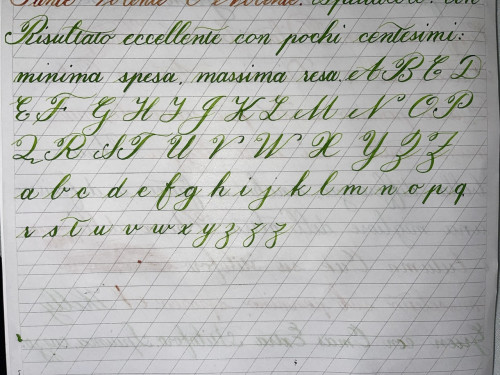 Risultato eccellente con pochi centesimi:
minima spesa, massima resa. A B C D
E F G H I J K L M N O P
Q R S T U V W X Y Z Z
a b c d e f g h i j k l m n o p q
r s t u v w x y z z z